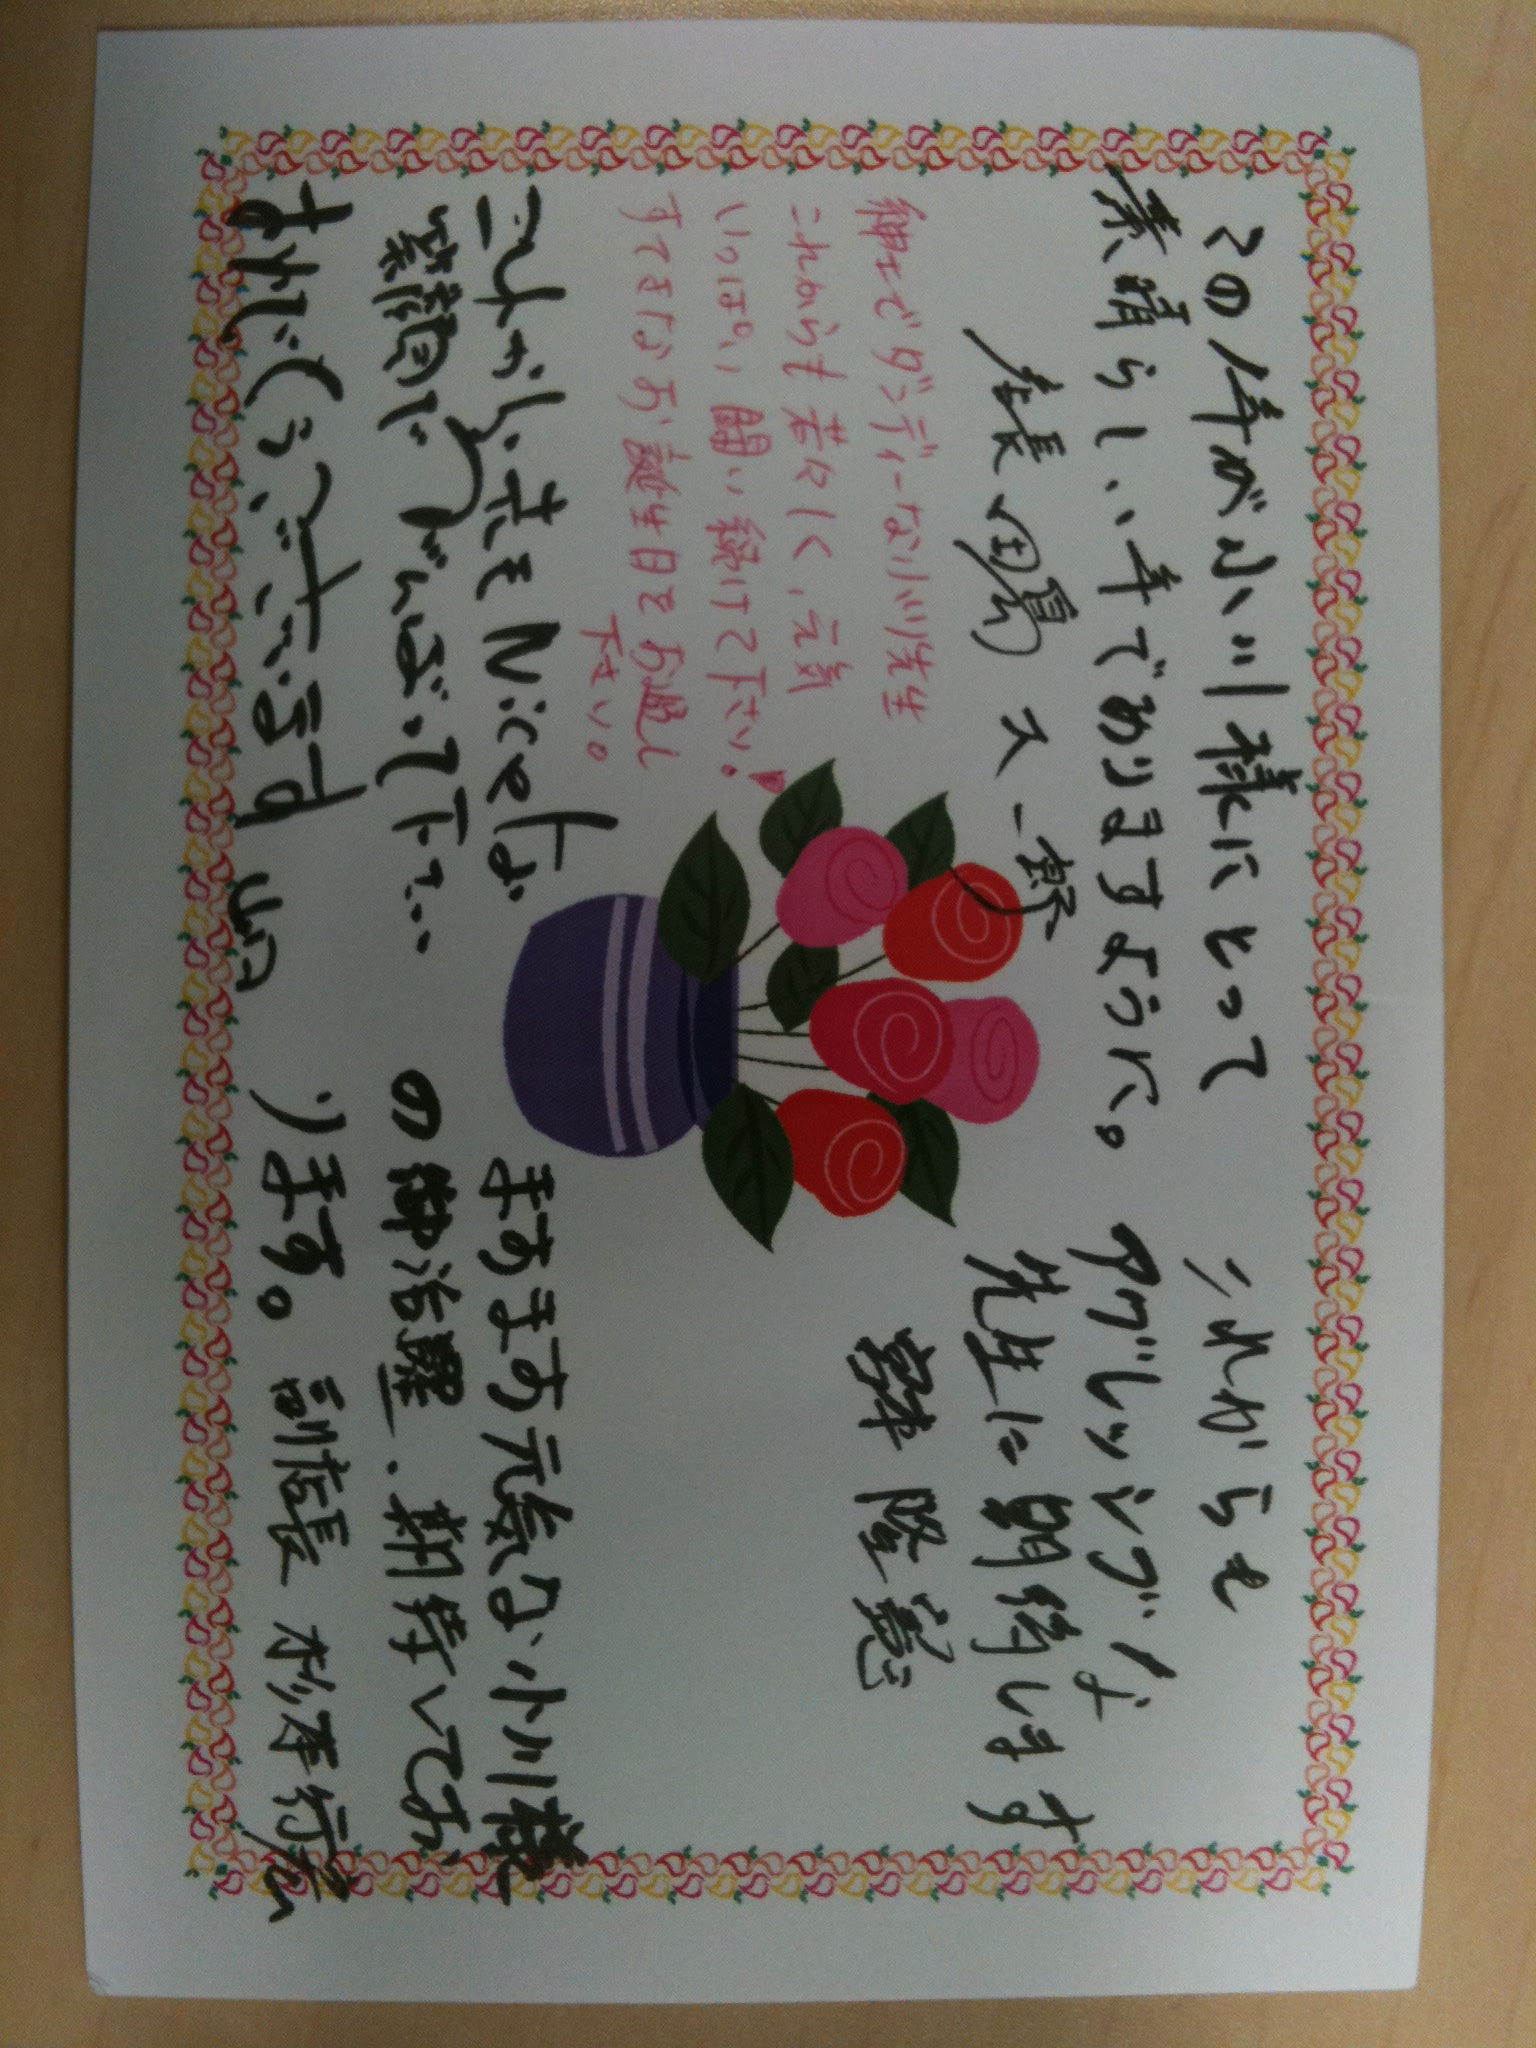 この年が小川様にとって
素晴らしい年でありますように。
店長
紳士でダンディーな小川先生
これからも若々しく、元気
いっぱい 闘い続けて下さい。
すてきなお誕生日をお過し
下さい。
これからも Niceな
笑顔で がんばって下さい
おめでとうございます
これからも
アグレッシブな
先生に期待します
隆憲
ますます元気な小川様
の御活躍、期待してお
ります。副店長 杉本行